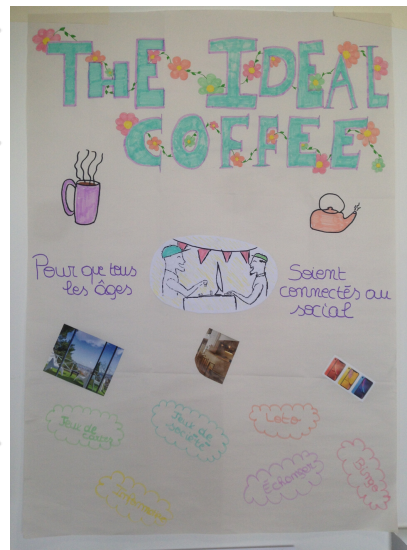 THE IDEAL
COFFEE
Pour que tous
les âges
Soient
connectés au
social
Jeux de
société
Loto
Jeux de
Échanges
Bingo